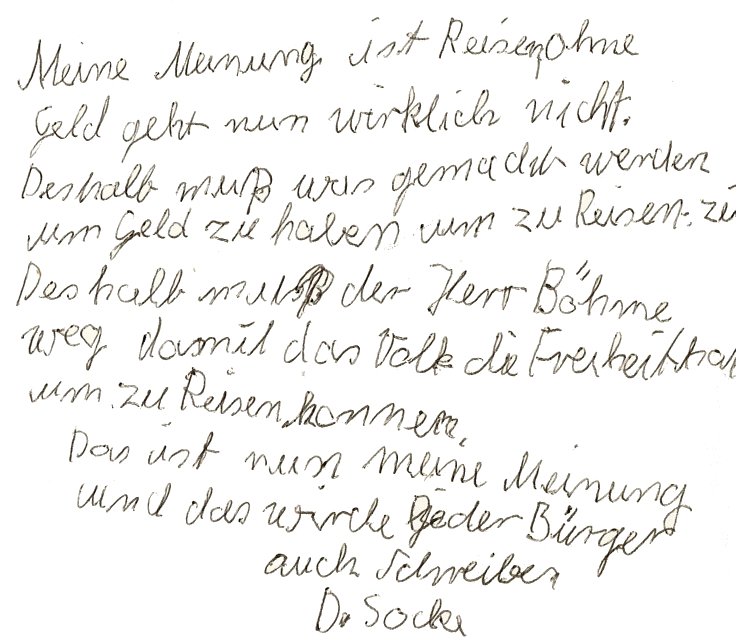 Meine Meinung ist Reisen, ohne
Geld geht nun wirklich nicht.
Deshalb muß was gemacht werden
um Geld zu haben um zu Reisen. zu
Deshalb muß der Herr Böhme
weg damit das Volk die Freiheit hat
um zu Reisen können.
Das ist nun meine Meinung
und das wird jeder Bürger
auch schreiben
D. Socke